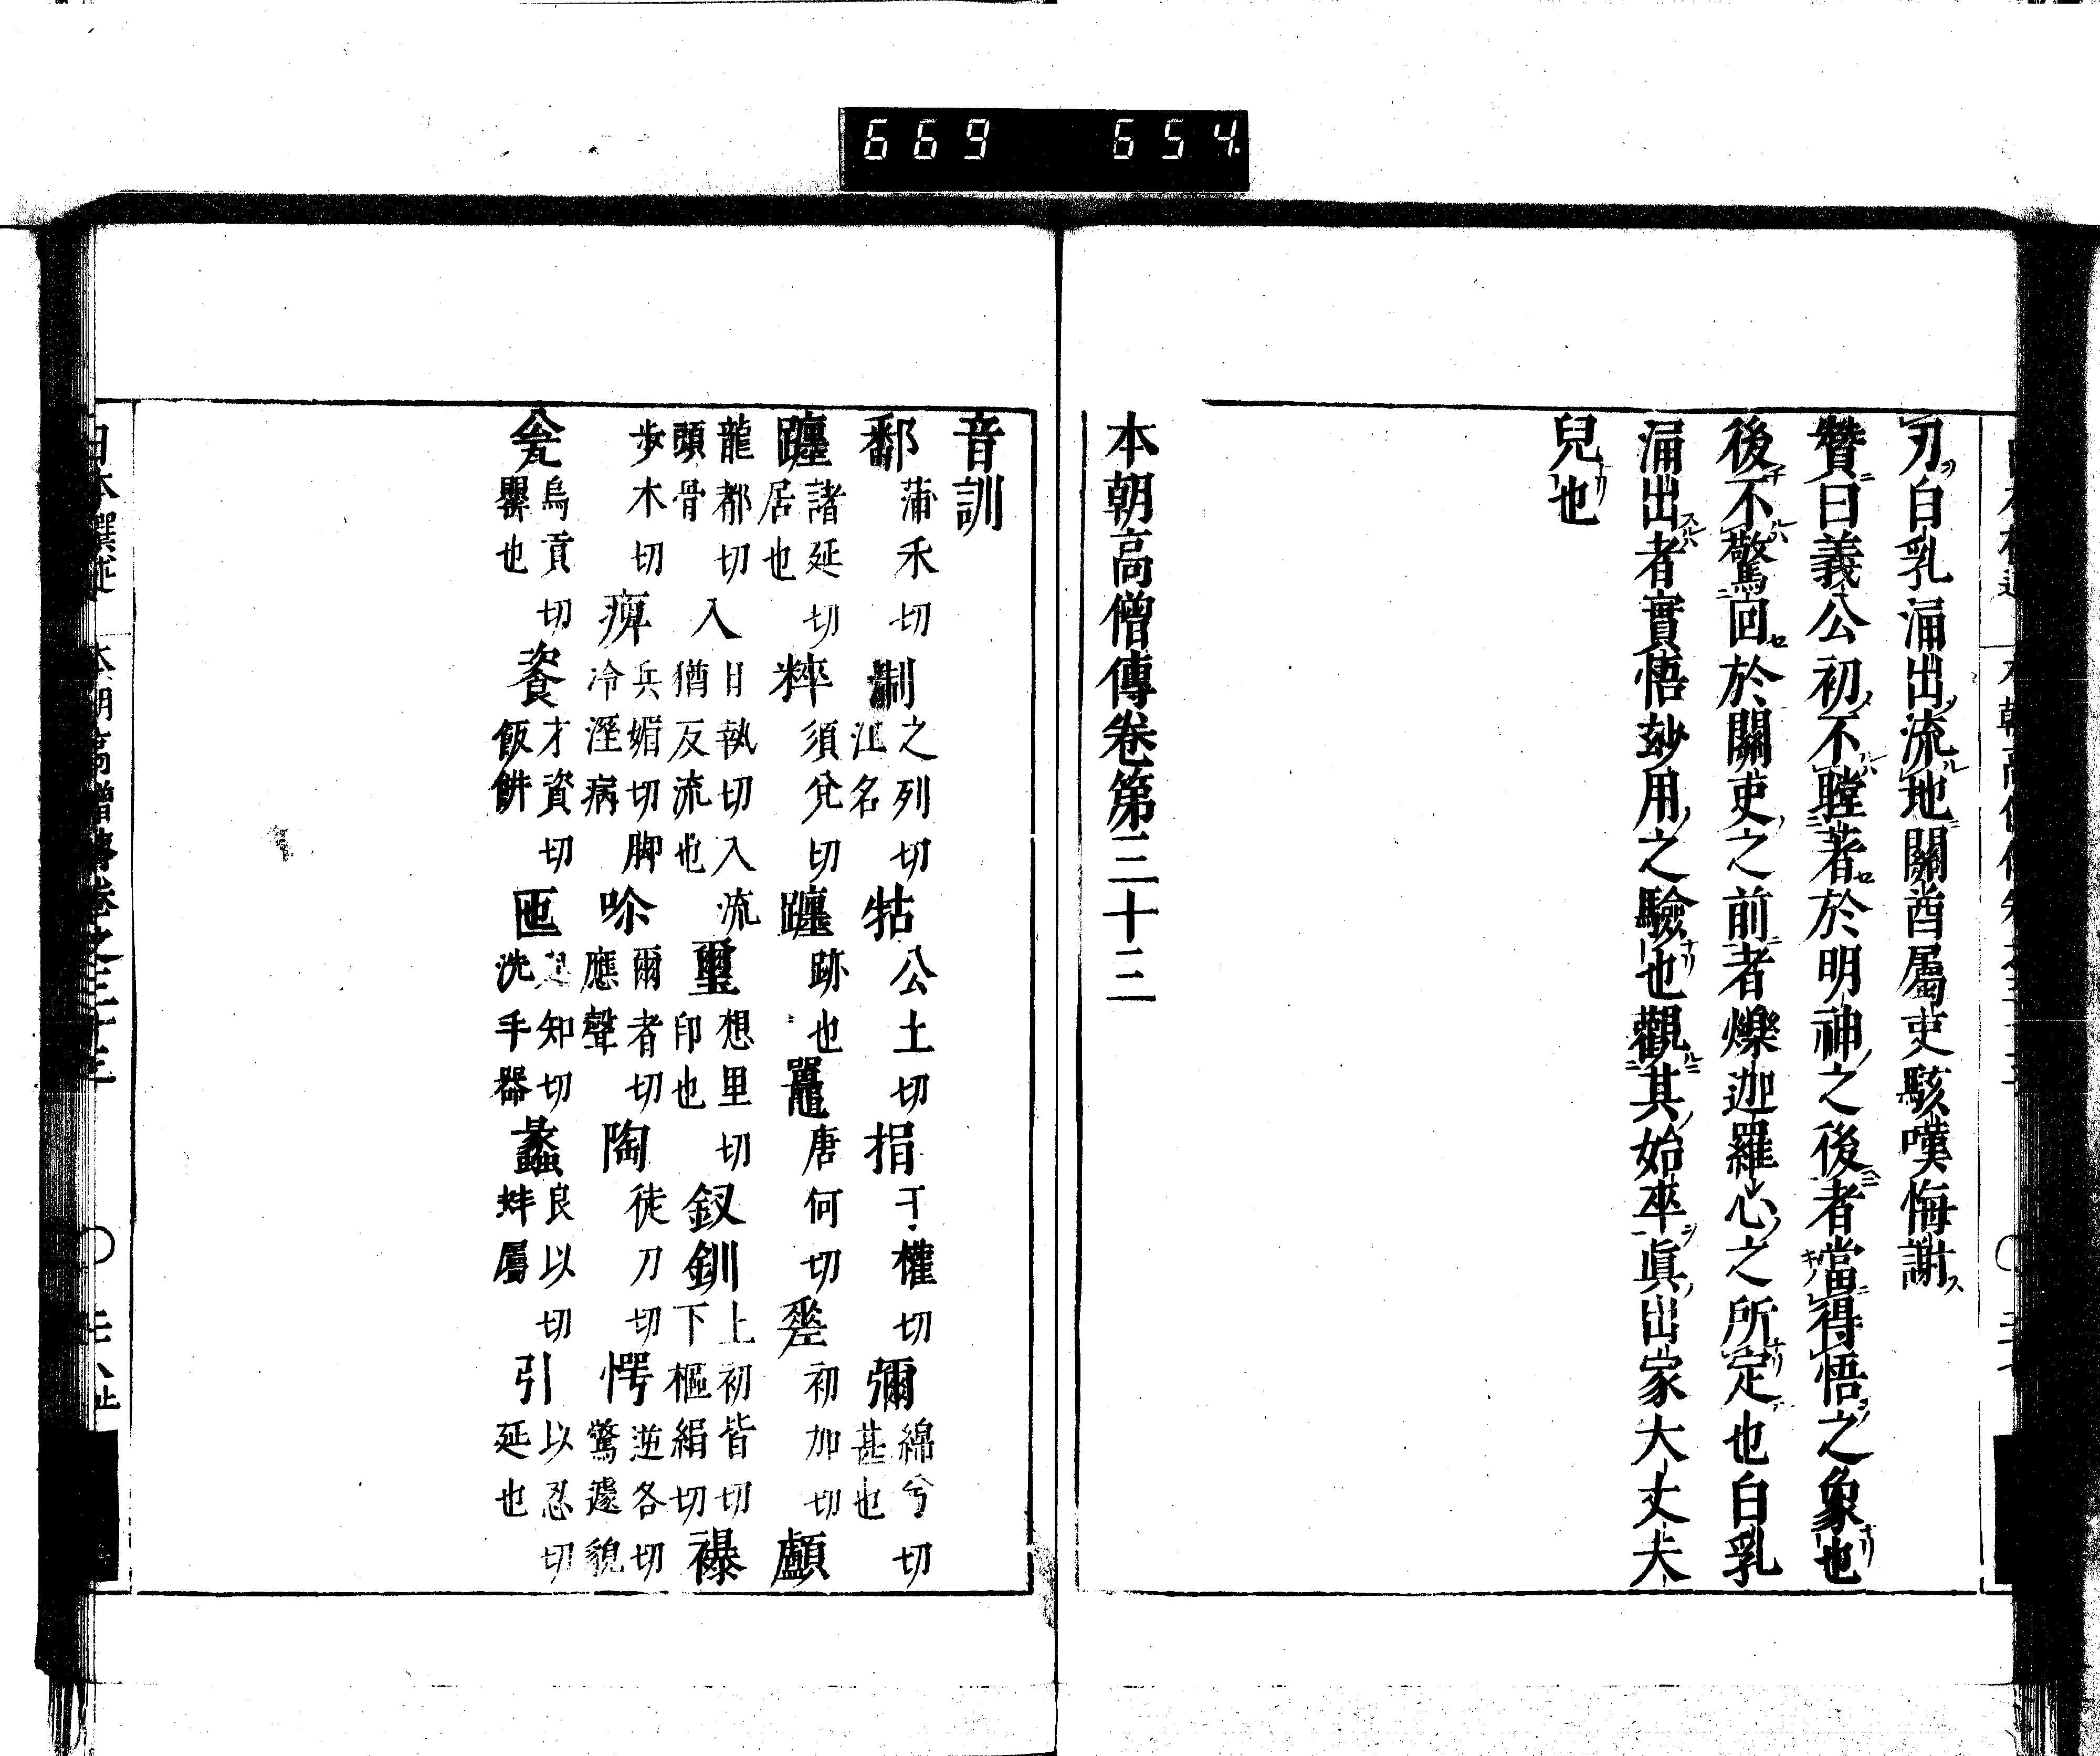 669 654
刃白乳涌出流地關酋屬吏駭嘆悔謝
贊曰義公初不瞠著於明神之後者當得悟之象也
後不驚回於關吏之前者爍迦羅心之所定也白乳
涌出者實悟玅用之驗也觀其始卒眞出家大丈夫
兒也
本朝高僧傳卷第三十三
音訓
鄱 蒲禾切 淛 之列切江名 牯 公土切 捐 于權切 彌 綿兮切甚也
躔 諸延切居也 粹 須兊切 躔 跡也 鼉 唐何切 鎈 初加切 顱
龍都切頭骨 入 日執切入流猶反流也 璽 想里切印也 釵釧 上初皆切下樞絹切 襆
步木切 痺 兵媚切脚冷溼病 㖿 爾者切應聲 陶 徒刀切 愕 逆各切驚遽貌
瓮 烏貢切罌也 餈 才資切飯餅 匜 知切洗手器 蠡 良以切蚌屬 引 以忍切延也
日本撰述 本朝高僧傳卷之三十三 〇 二十八